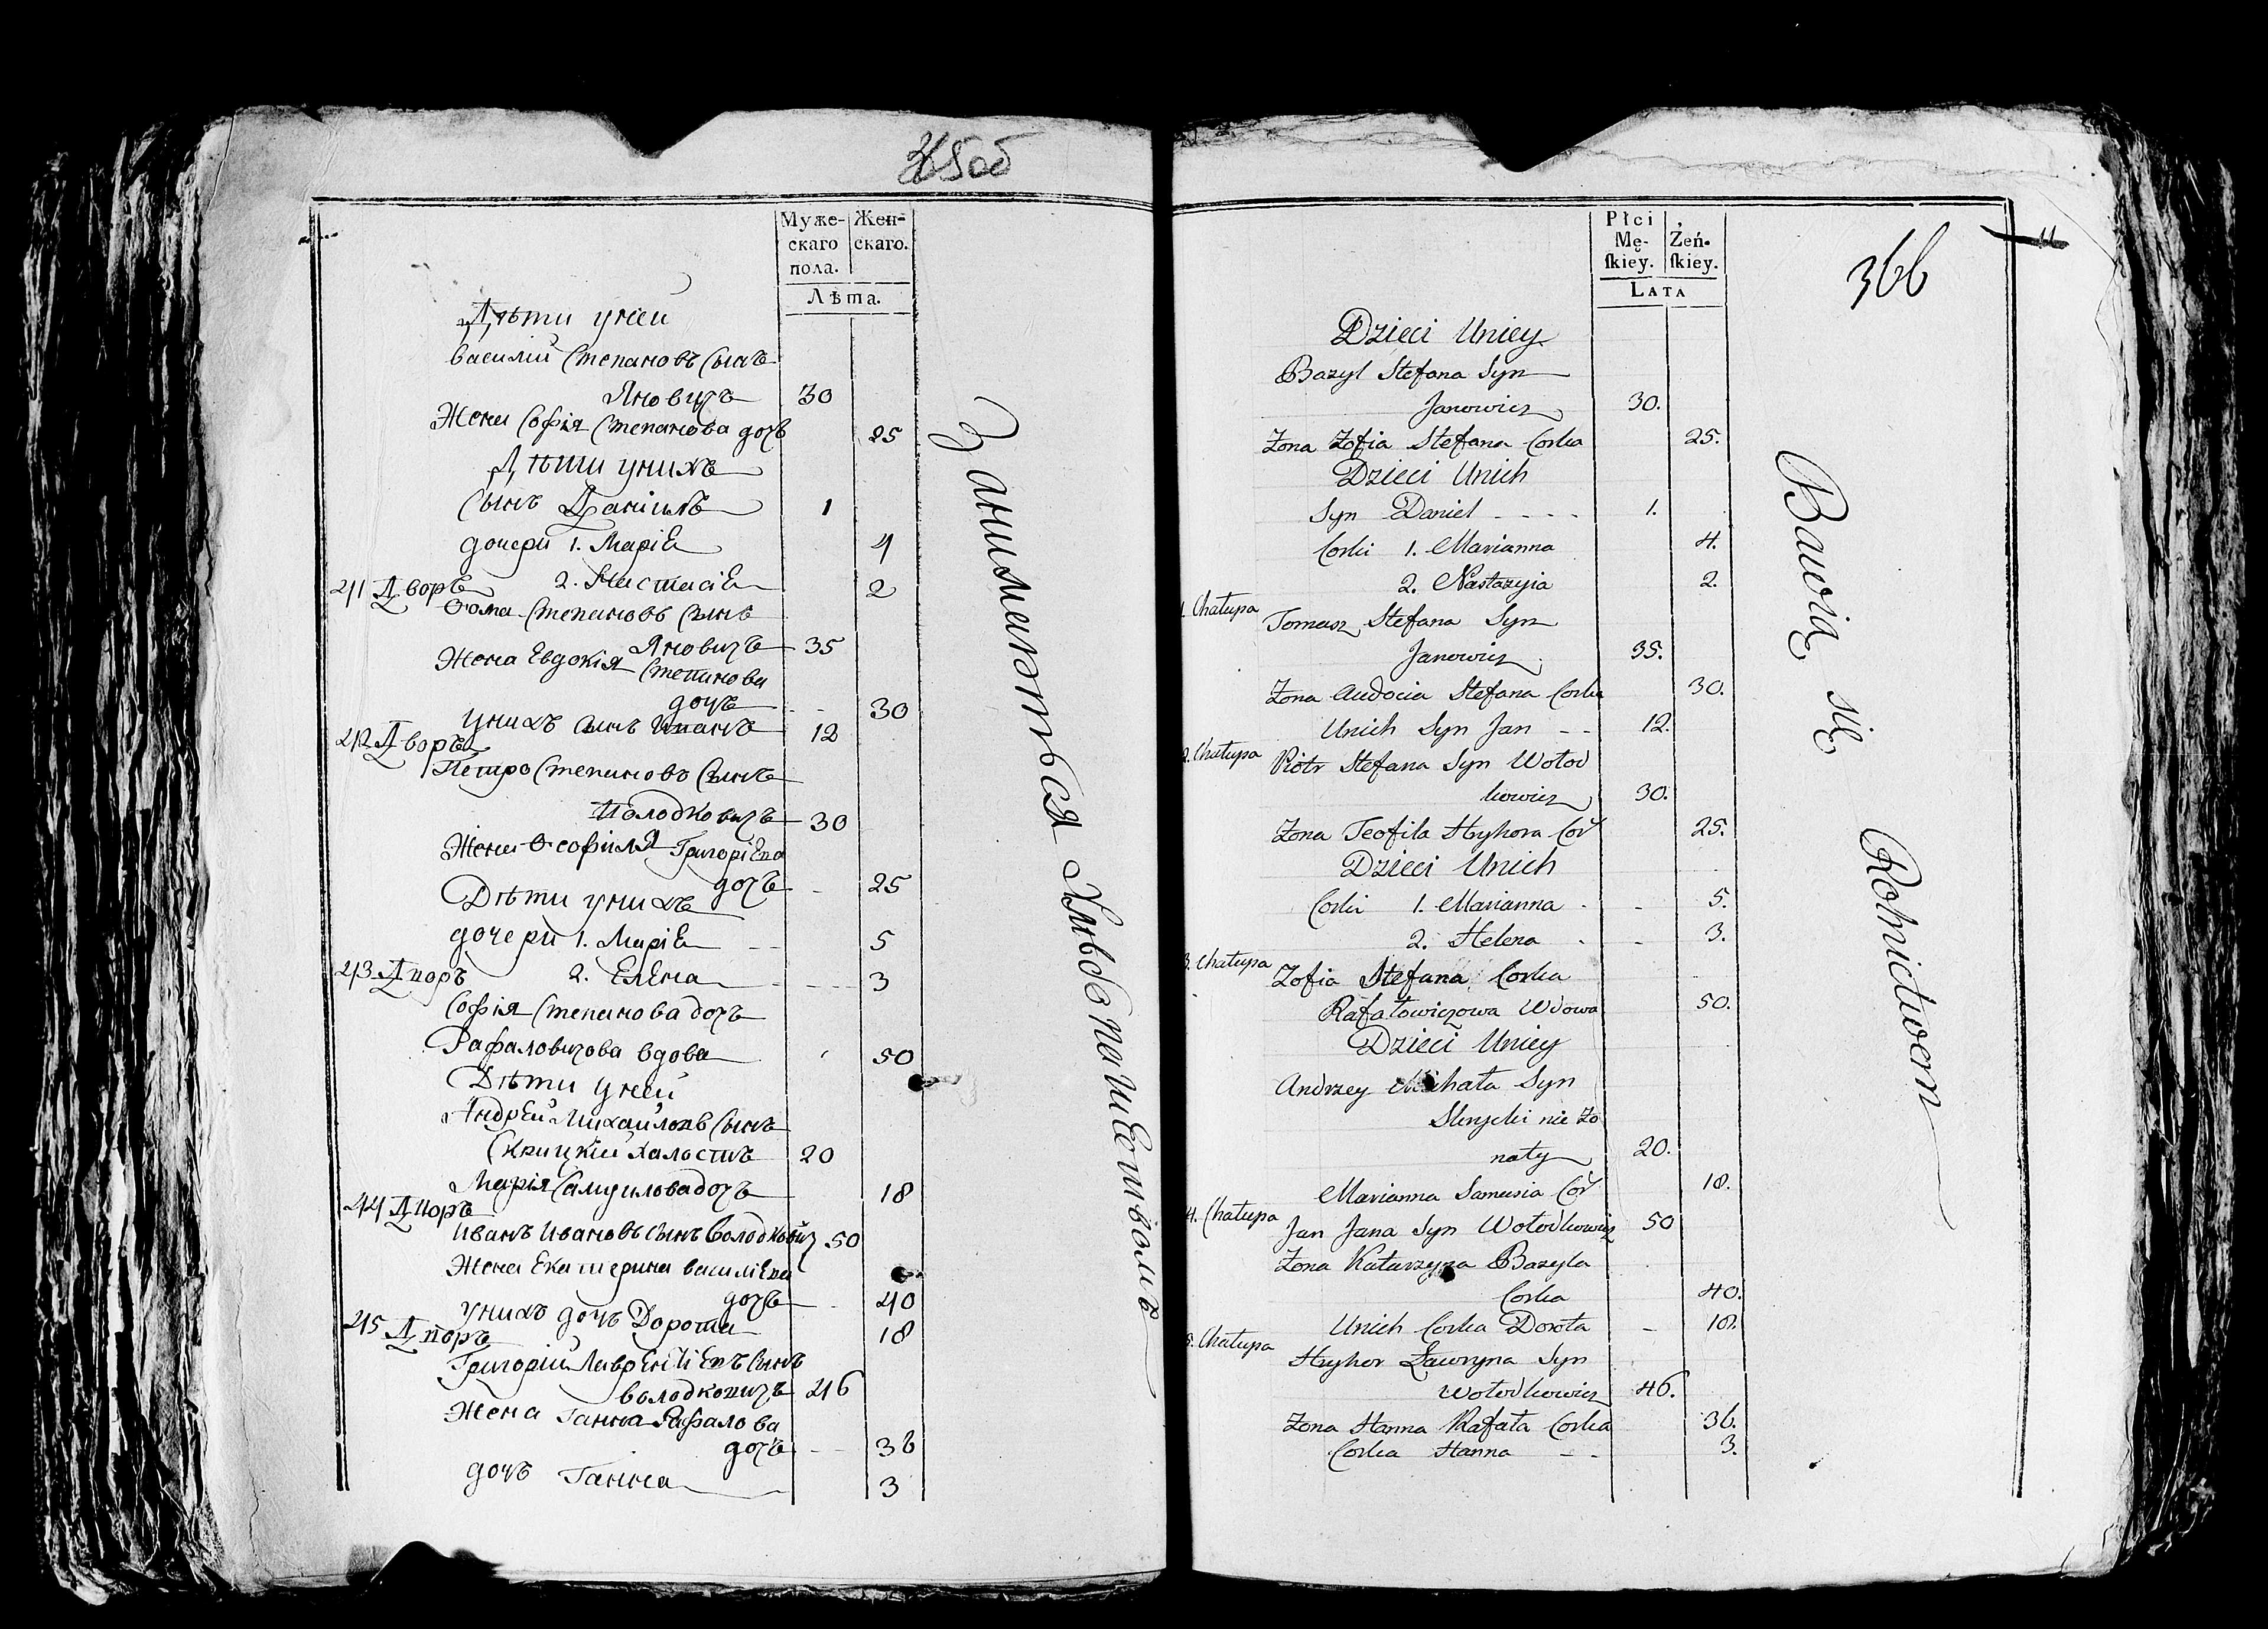 Муже-
скаго
пола.
Жен-
скаго.
Лѣта.
Дѣти унеей
Василий Степановъ Сынъ
Яновичъ 30
Жена Софія Степанова дочъ 25
Дѣти унихъ
Сынъ Даніилъ 1
дочери 1. Маріѣ 4
41 Дворъ 2. Настасіѣ 2
Ѳома Степановъ Сынъ
Яновичъ 35
Жена Евдокія Степанова
дочъ 30
унихъ Сынъ Иванъ 12
42 Дворъ
Петро Степановъ Сынъ
Володковичъ 30
Жена Ѳеофиля Григоріева
дочъ 25
Дѣти унихъ
дочери 1. Маріѣ 5
43 Дворъ 2. Елена 3
Софія Степанова дочъ
Рафаловичова вдова 50
Дѣти унеей
Андрей Михайловъ Сынъ
Скрицкій халостъ 20
Марія Самуилова дочъ 18
44 Дворъ
Иванъ Ивановъ Сынъ Володковичъ 50
Жена Екатерина Василіева
дочъ 40
унихъ дочъ Дорота 18
45 Дворъ
Григорій Лаврентіевъ Сынъ
Володковичъ 46
Жена Ганна Рафалова
дочъ 36
дочъ Ганна 3
Занимаються Хлѣбопашествомъ
Płci
Mę-
ſkiey.
Żeń-
ſkiey.
LATA
366
11
Dzieci Uniey
Bazyl Stefana Syn
Janowicz 30.
Zona Zofia Stefana Corka 25.
Dzieci Unich
Syn Daniel 1.
Corki 1. Marianna 4.
2. Nastazyia 2.
1. Chałupa
Tomasz Stefana Syn
Janowicz 35.
Zona Audocia Stefana Corka 30.
Unich Syn Jan 12.
2. Chałupa Piotr Stefana Syn Wołod
kowicz 30.
Zona Teofila Hryhora Cor 25.
Dzieci Unich
Corki 1. Marianna 5.
2. Helena 3.
3. Chałupa Zofia Stefana Corka
Rafałowiczowa Wdowa 50.
Dzieci Uniey
Andrzey Michała Syn
nie żo
naty 20.
Marianna Samusia Cor 18.
4. Chałupa Jan Jana Syn Wołodkowicz 50
Zona Katarzyna Bazyla
Corka 40.
Unich Corka Dorota 18.
5. Chałupa
Hryhor Ławryna Syn
Wołodkowicz 46.
Zona Hanna Rafała Corka 36.
Corka Hanna 3.
Bawią się Rolnictwem